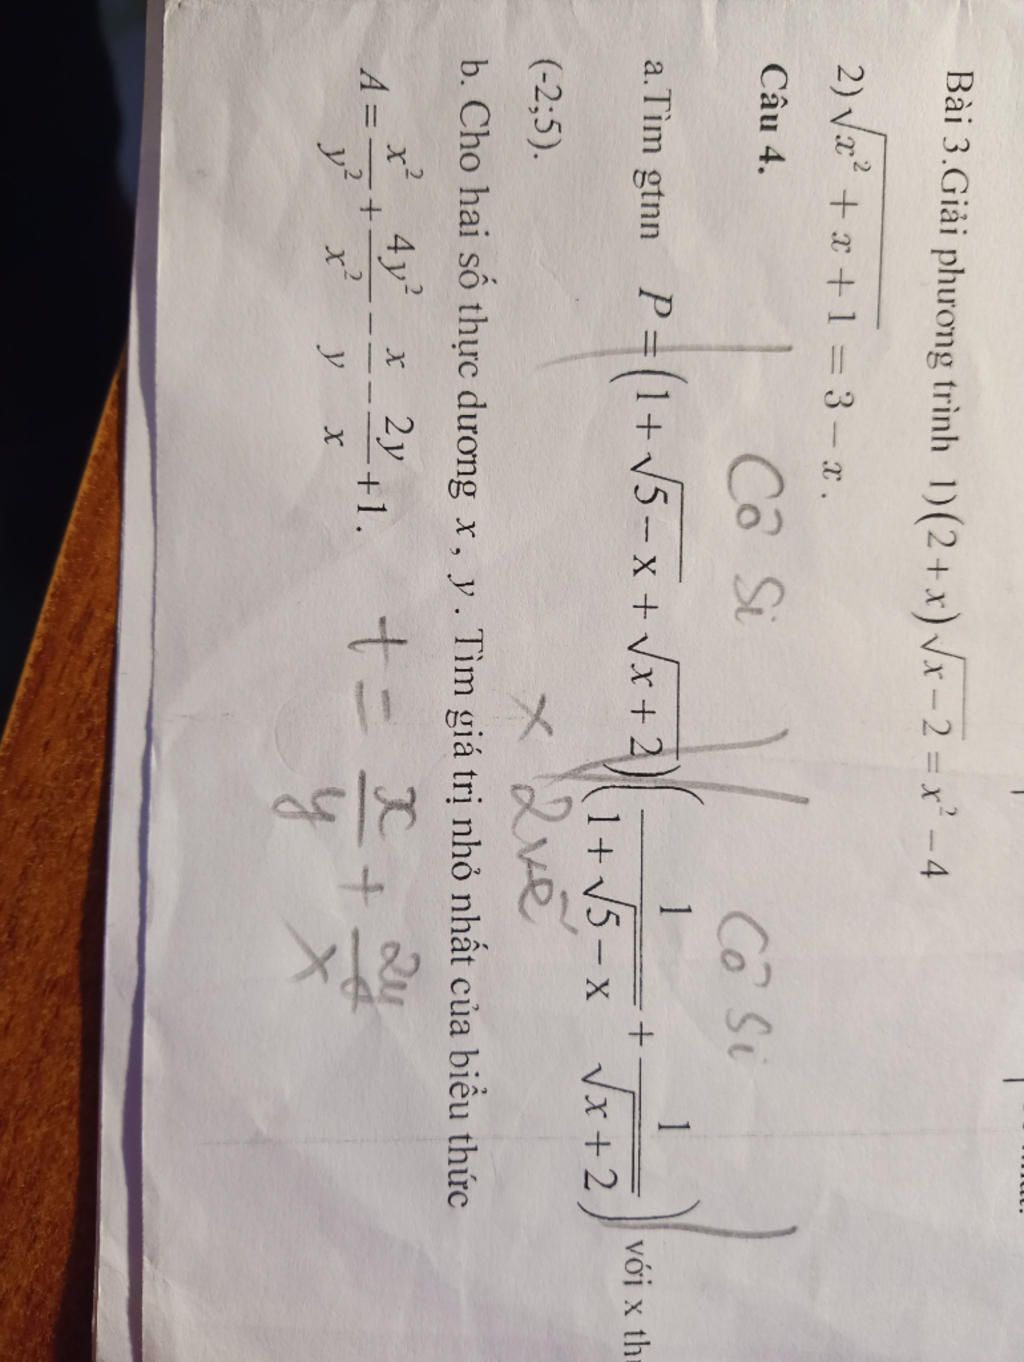 Bài 3.Giải phương trình 1)(2+x)√(x−2) = x² − 4
2)√(x² + x + 1) = 3 − x.
Câu 4.
Cô Si Cô Si
a.Tìm gtnn P = (1 + √(5−x) + √(x+2))(1/(1+√(5−x)) + 1/√(x+2)) với x
(-2;5).
x 2 vế
b. Cho hai số thực dương x, y. Tìm giá trị nhỏ nhất của biểu thức
A = x²/y² + 4y²/x² − x/y − 2y/x + 1.
t = x/y + 2y/x